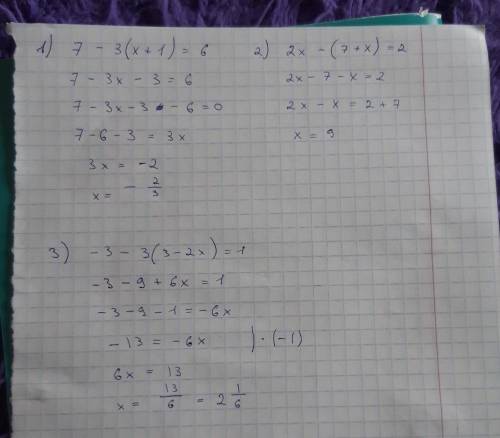 1) 7 - 3(x+1) = 6
7 - 3x - 3 = 6
7 - 3x - 3 - 6 = 0
7 - 6 - 3 = 3x
3x = -2
x = - 2/3
2) 2x - (7+x) = 2
2x - 7 - x = 2
2x - x = 2 + 7
x = 9
3) -3 - 3(3-2x) = 1
-3 - 9 + 6x = 1
-3 - 9 - 1 = -6x
-13 = -6x | · (-1)
6x = 13
x = 13/6 = 2 1/6